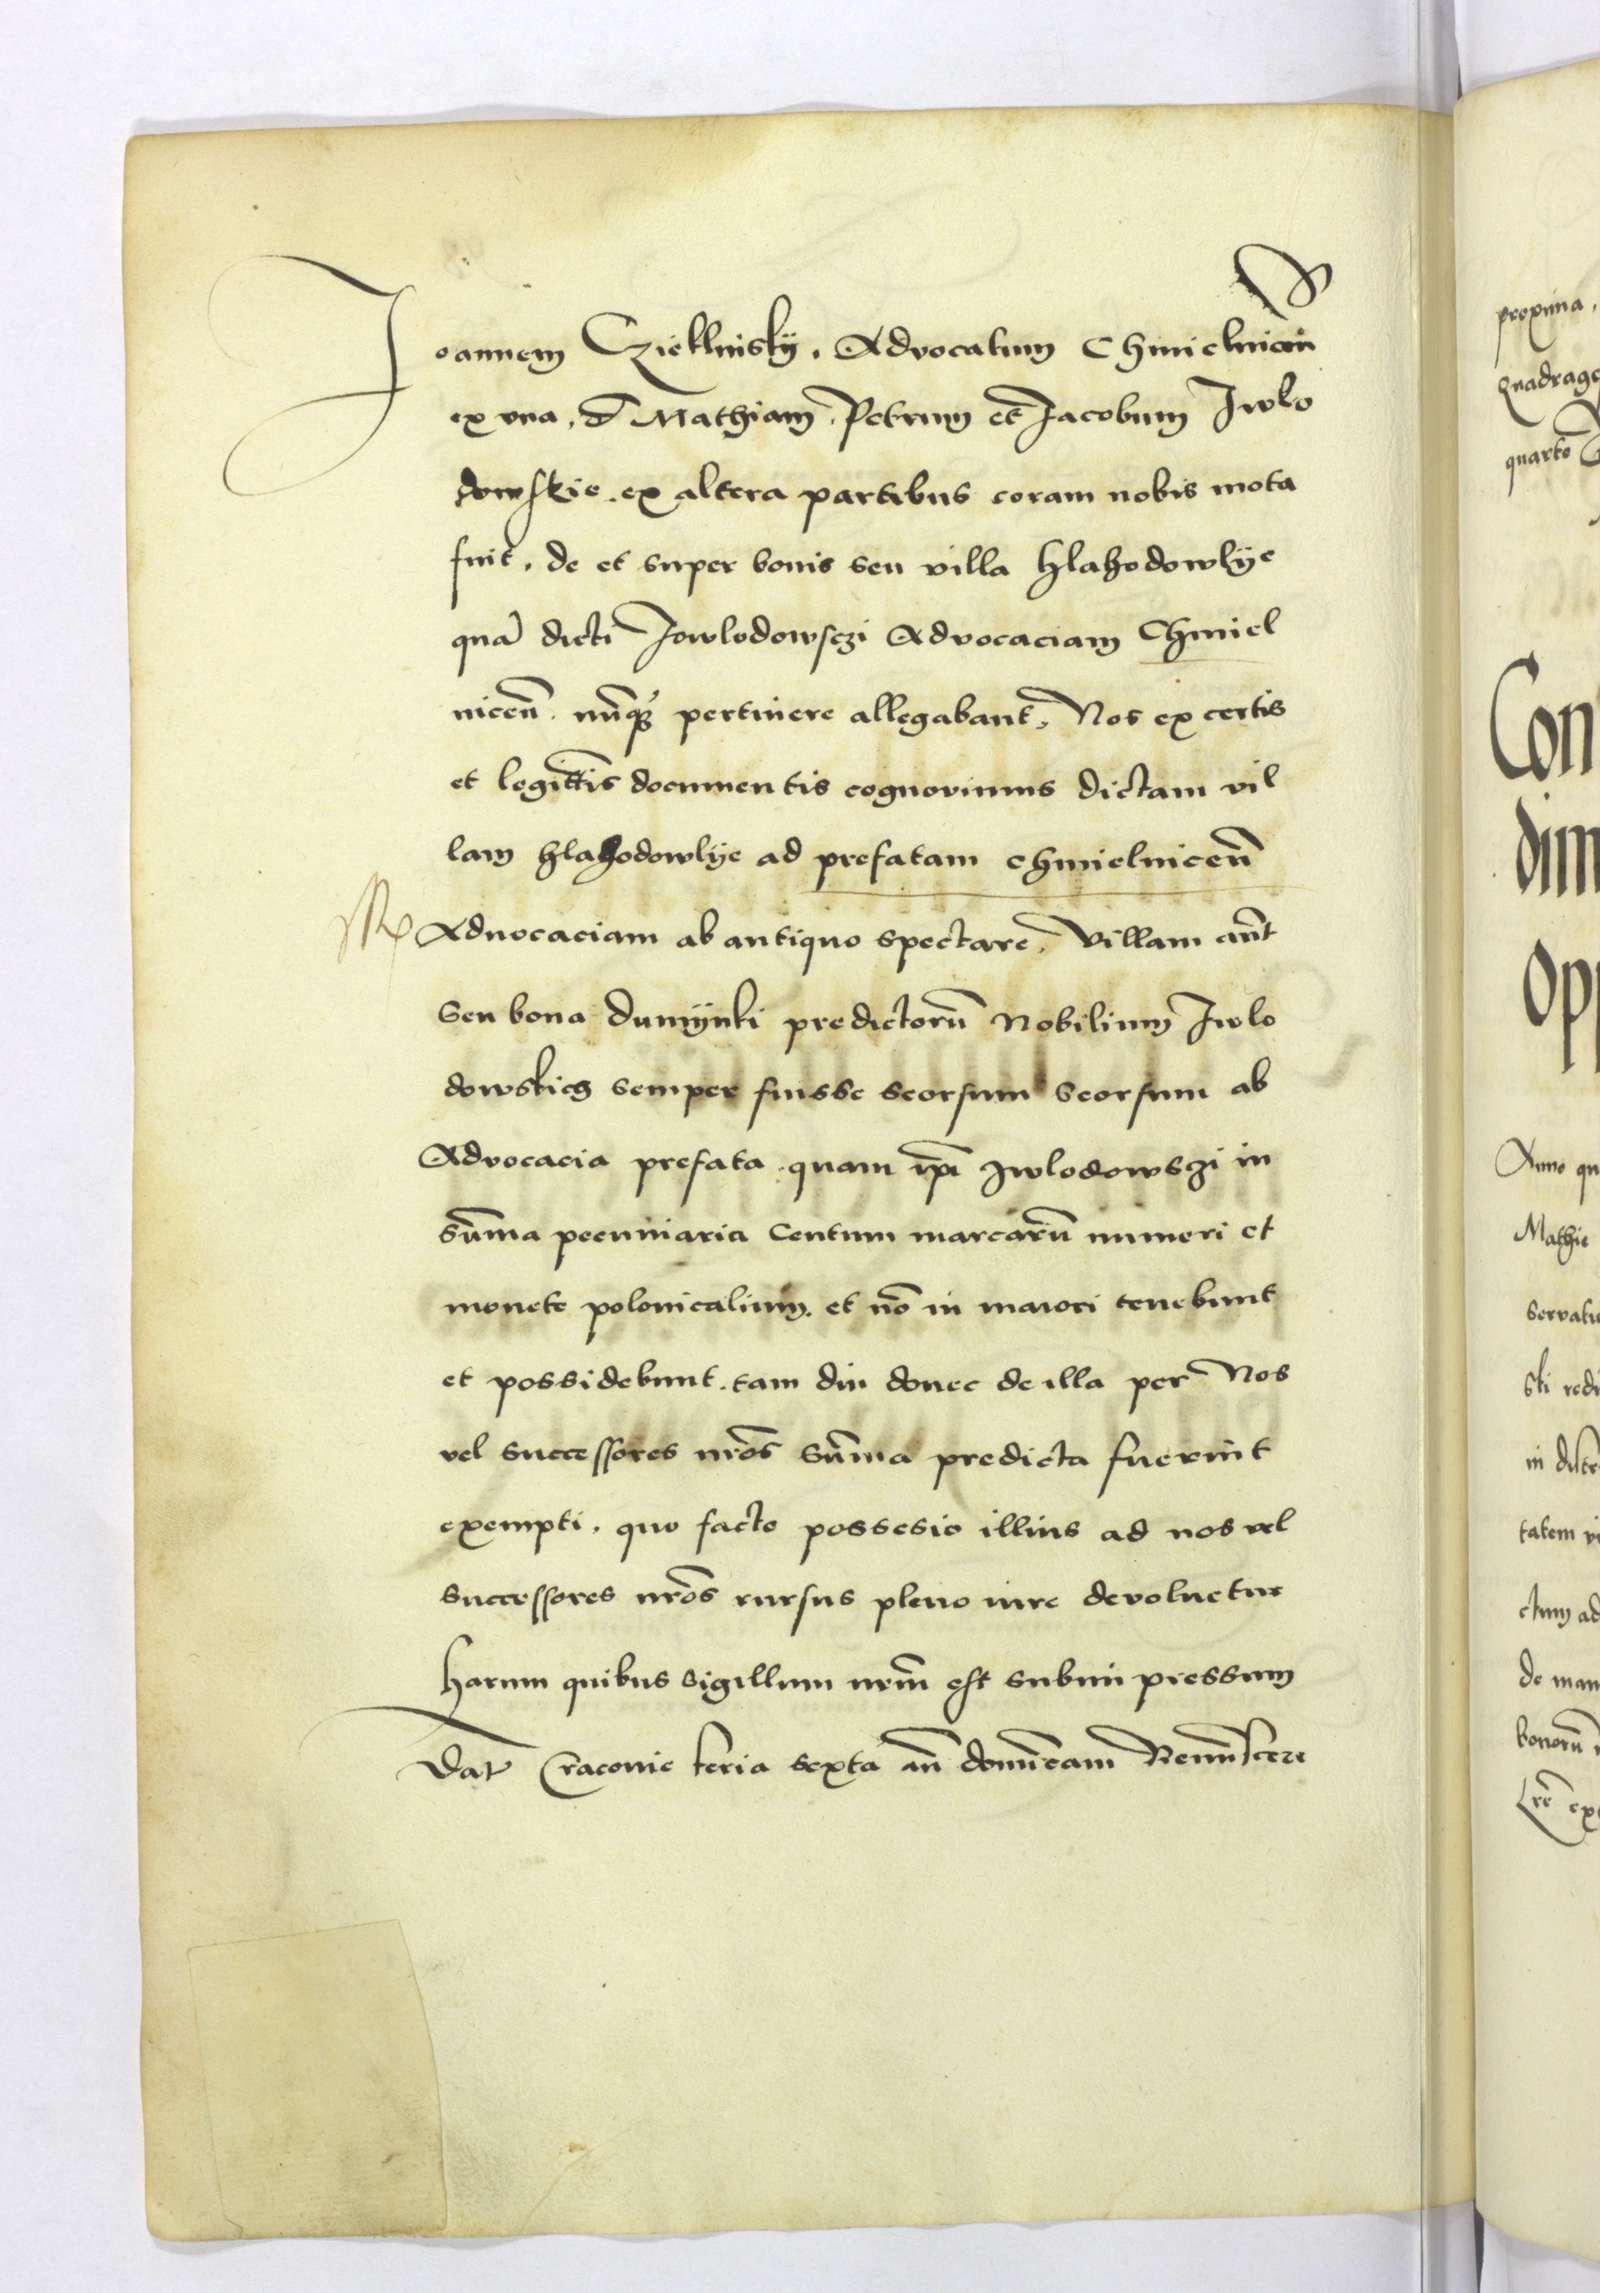 Joannem Czieklinsky, Advocatum Chmielnicen̄
ex vna, et Mathiam, Petrum et Jacobum Iwlo
dowskie. ex altera partibus coram nobis mota
fuit, de et super bonis seu villa Hlahodowlye
quā dicti Jowlodowsczi Advocaciam Chmiel
nicen̄. nunq̄ pertinere allegabant, Nos ex certis
et legittīs documentis cognovimus dictam vil
lam Hlahodowlye ad prefatam Chmielnicen̄
Aduocaciam ab antiquo spectare, Villam aūt
Seu bona Dumynki predictorū Nobilium Iwlo
dowskich semper fuisse seorsum seorsum ab
Advocacia prefata. quam ip̄i Iwlodowszi in
sūma pecuniaria Centum marcarū numeri et
monete polonicalium. et nō in maiori tenebunt
et possidebunt. tam diu donec de illa per Nos
vel successores nr̄os Sūma predicta fuerint
exempti. quo facto possesio illius ad nos vel
successores nr̄os rursus pleno iure devoluetur
Harum quibus sigillum nr̄m est subimpressum
Dat Cracovie feria sexta an̄ domīcam Reminiscere
proxima.
Quadrage
quarto
Con
dim
Opp
Anno qu
Mathie
servatu
ski redi
in
tatem vi
ctum ad
de man
bonorū
Lr̄e ex